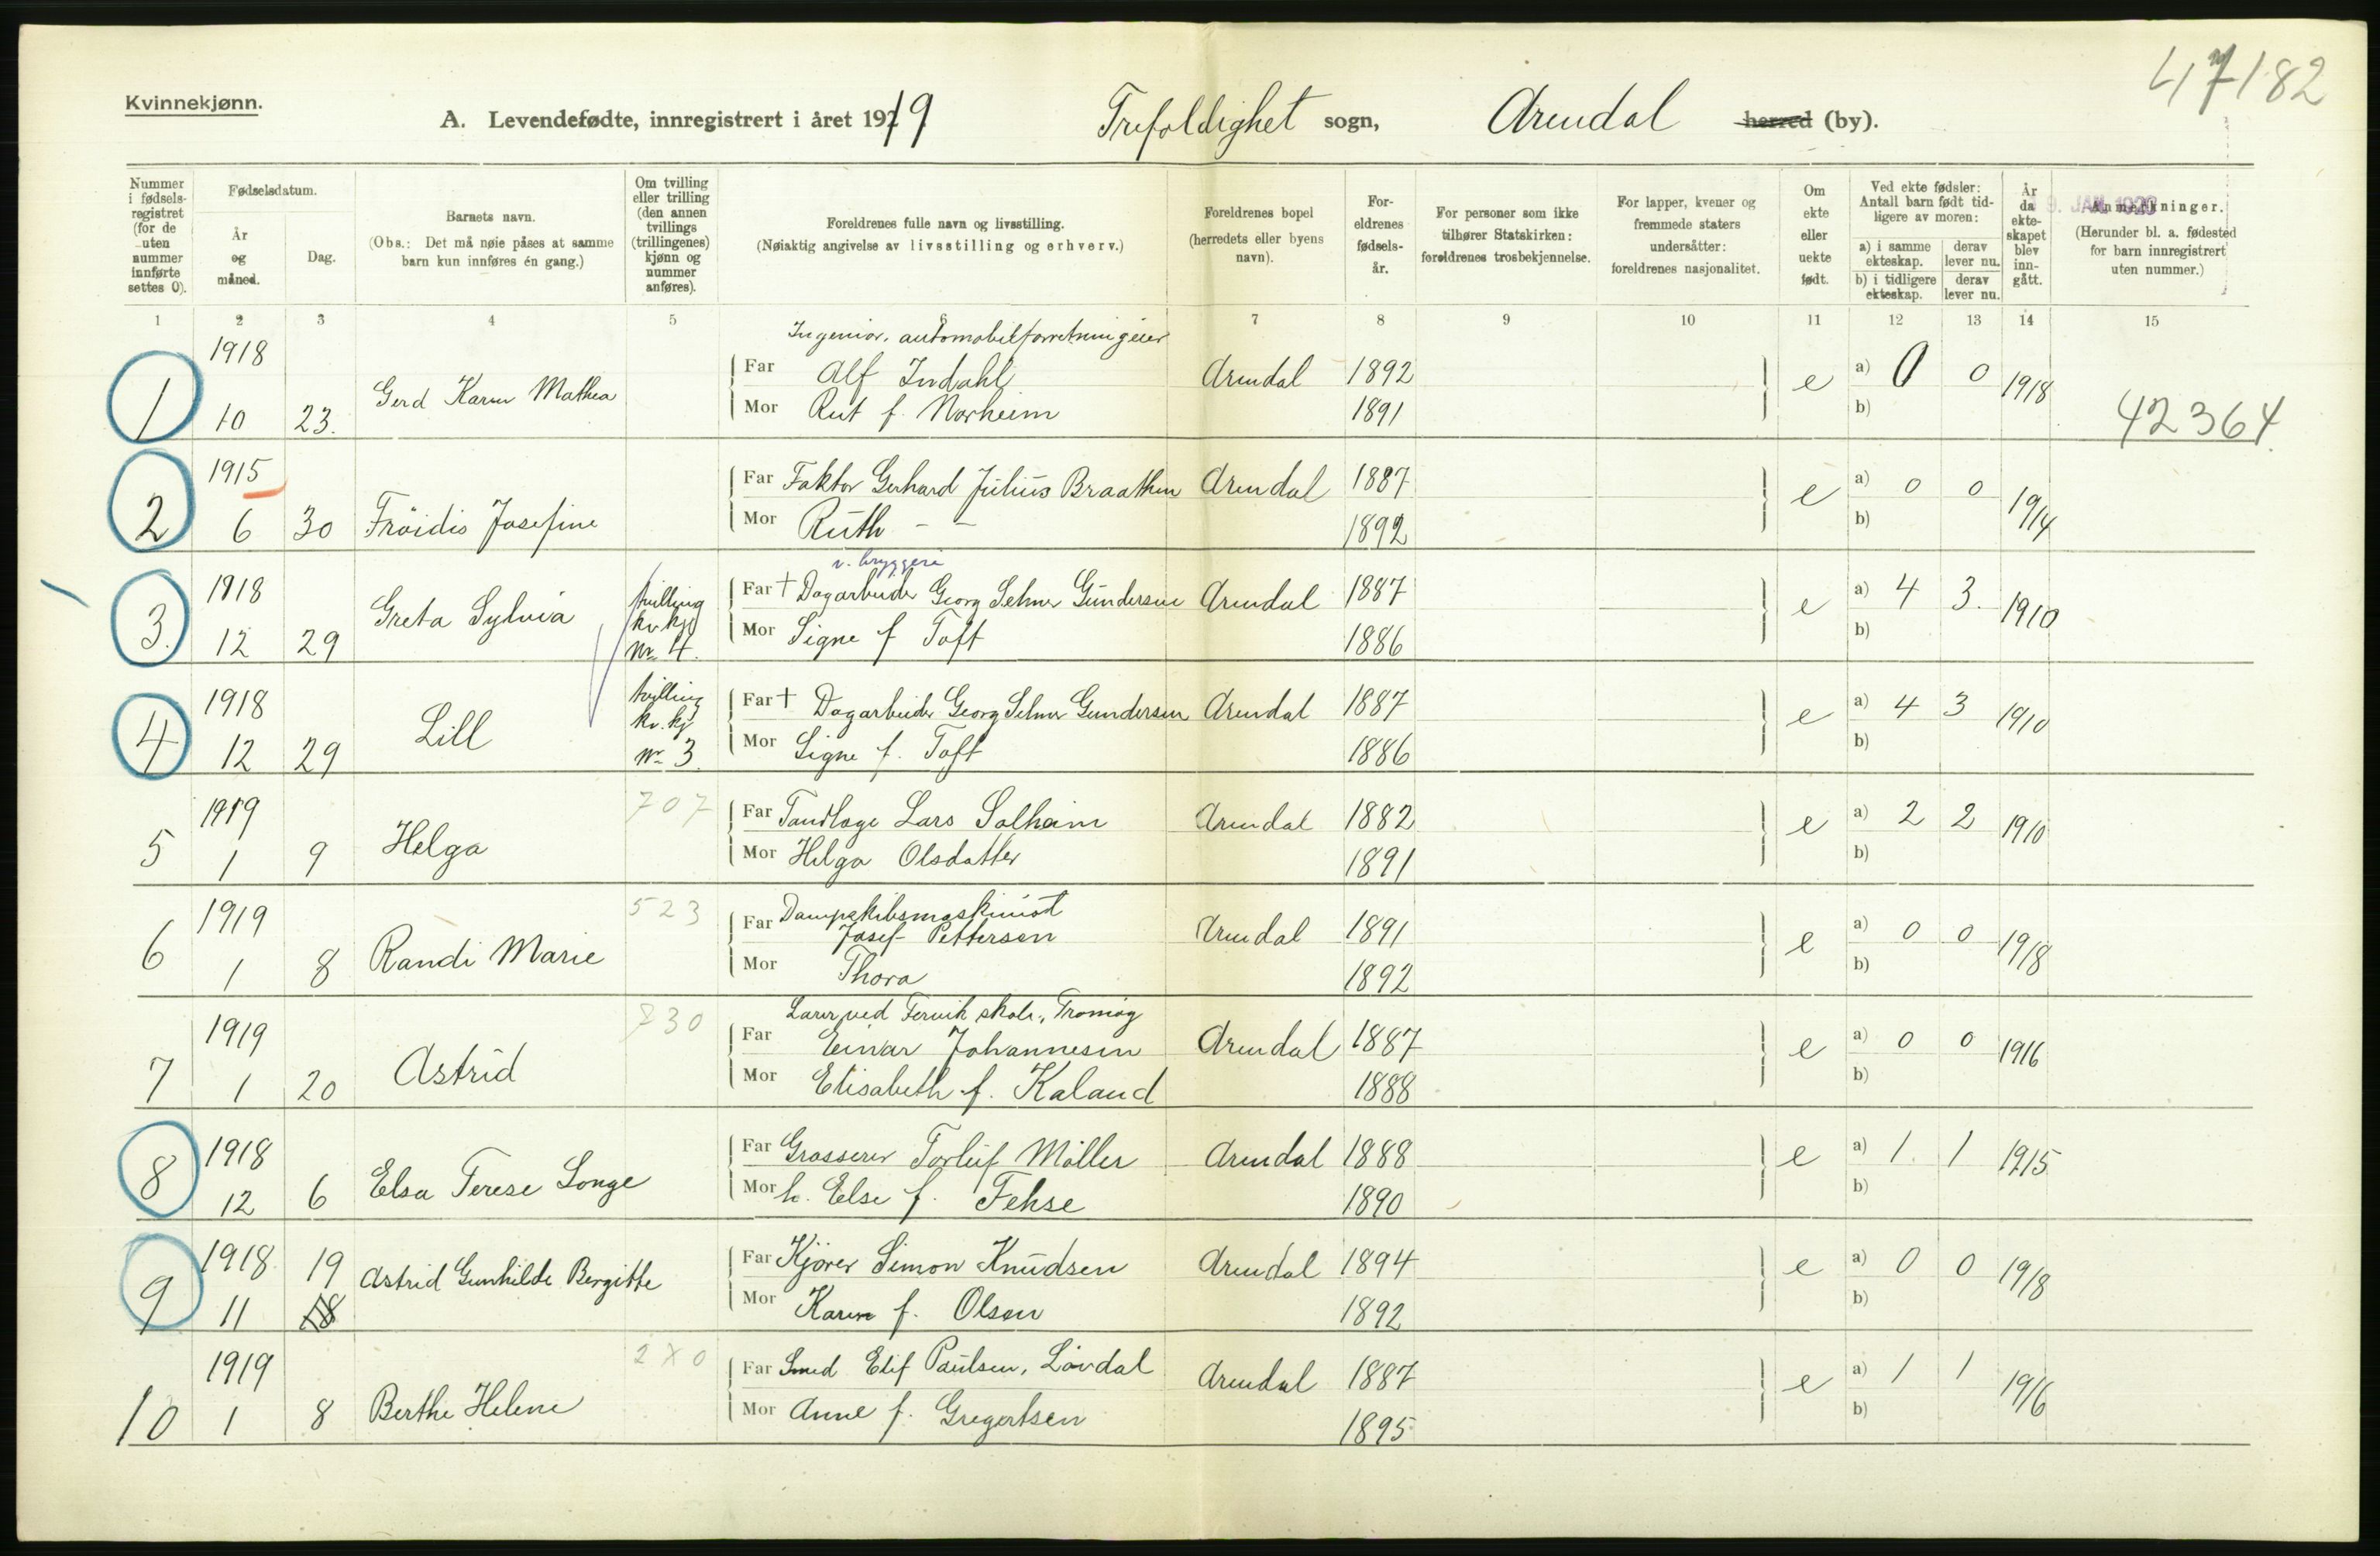 47182
Kvinnekjønn.
A. Levendefødte, innregistrert i året 1919 Trefoldighet sogn, Arendal herred (by).
Nummer i fødselsregistret (for de uten nummer innførte settes 0).
Fødselsdatum.
År og måned.
Dag.
Barnets navn.
(Obs.: Det må nøie påses at samme barn kun innføres én gang.)
Om tvilling eller trilling (den annen tvillings (trillingenes) kjønn og nummer anføres).
Foreldrenes fulle navn og livsstilling.
(Nøiaktig angivelse av livsstilling og erhverv.)
Foreldrenes bopel (herredets eller byens navn).
Foreldrenes fødselsår.
For personer som ikke tilhører Statskirken: foreldrenes trosbekjennelse.
For lapper, kvener og fremmede staters undersåtter: foreldrenes nasjonalitet.
Om ekte eller uekte født.
Ved ekte fødsler: Antall barn født tidligere av moren:
a) i samme ekteskap. derav lever nu.
b) i tidligere ekteskap. derav lever nu.
År da ekteskapet blev inngått.
9. JAN. 1920
Anmerkninger.
(Herunder bl. a. fødested for barn innregistrert uten nummer.)
1 2 3 4 5 6 7 8 9 10 11 12 13 14 15
1918 Ingeniør, automobilforretningeier
Far Alf Indahl Arendal 1892 e a) 0 0 1918
1 10 23. Gerd Karen Mathea
Mor Rut f. Norheim 1891 b) 42364
1915 Far Faktor Gerhard Julius Braathen Arendal 1887 e a) 0 0 1914
2 6 30 Fröidis Josefine Mor Ruth - - 1892 b)
v. bryggeri
1918 Greta Sylvia tvilling kv. kj. Nr. 4. Far † Dagarbeider Georg Selmer Gundersen Arendal 1887 e a) 4 3. 1910
3. 12 29 Mor Signe f Toft 1886 b)
1918 Lill tvilling kv. kj. Nr. 3. Far † Dagarbeider Georg Selmer Gundersen Arendal 1887 e a) 4 3 1910
4 12 29 Mor Signe f. Toft 1886 b)
1919 707 Far Tandlæge Lars Solheim Arendal 1882 e a) 2 2 1910
5 1 9 Helga Mor Helga Olsdatter 1891 b)
1919 523 Far Dampskibsmaskinist
Josef Pettersen Arendal 1891 e a) 0 0 1918
6 1 8 Randi Marie Mor Thora 1892 b)
1919 730 Lærer ved Færvik skole, Tromøy
Far Einar Johannesen Arendal 1887 e a) 0 0 1916
7 1 20 Astrid Mor Elisabeth f. Kaland 1888 b)
1918 Far Grosserer Torleif Möller Arendal 1888 e a) 1. 1 1915
8 12 6 Elsa Terese Longe Mor h. Else f. Fehse 1890 b)
1918 19 Astrid Gunhilde Bergitte Far Kjører Simon Knudsen Arendal 1894 e a) 0 0 1918
9 11 18 Mor Karen f. Olsen 1892 b)
1919 2 0 Far Smed Elif Paulsen, Lövdal Arendal 1887 e a) 1 1 1916
10 1 8 Berthe Helene Mor Anne f. Gregertsen 1895 b)